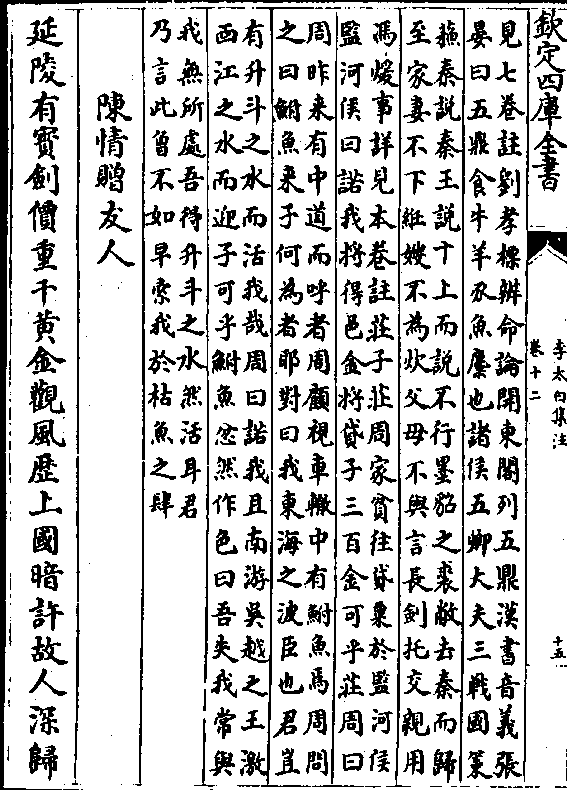 欽定四庫全書
李太白集注
卷十二
十五
見七卷註劉孝標辨命論開東閣列五鼎漢書音義張
晏曰五鼎食牛羊豕魚麋也諸侯五卿大夫三戰國策
蘇秦說秦王說十上而說不行墨貂之裘敝去秦而歸
至家妻不下絍嫂不為炊父母不與言長劍托交親用
馮煖事詳見本卷註莊子莊周家貧往貸粟於監河侯
監河侯曰諾我將得邑金將貸子三百金可乎莊周曰
周昨来有中道而呼者周顧視車轍中有鮒魚焉周問
之曰鮒魚来子何為者耶對曰我東海之波臣也君豈
有升斗之水而活我哉周曰諾我且南游吳越之王激
西江之水而迎子可乎鮒魚忿然作色曰吾失我常與
我無所處吾得升斗之水然活耳君
乃言此曾不如早索我於枯魚之肆
陳情贈友人
延陵有寳劍價重千黄金觀風歴上國暗許故人深歸